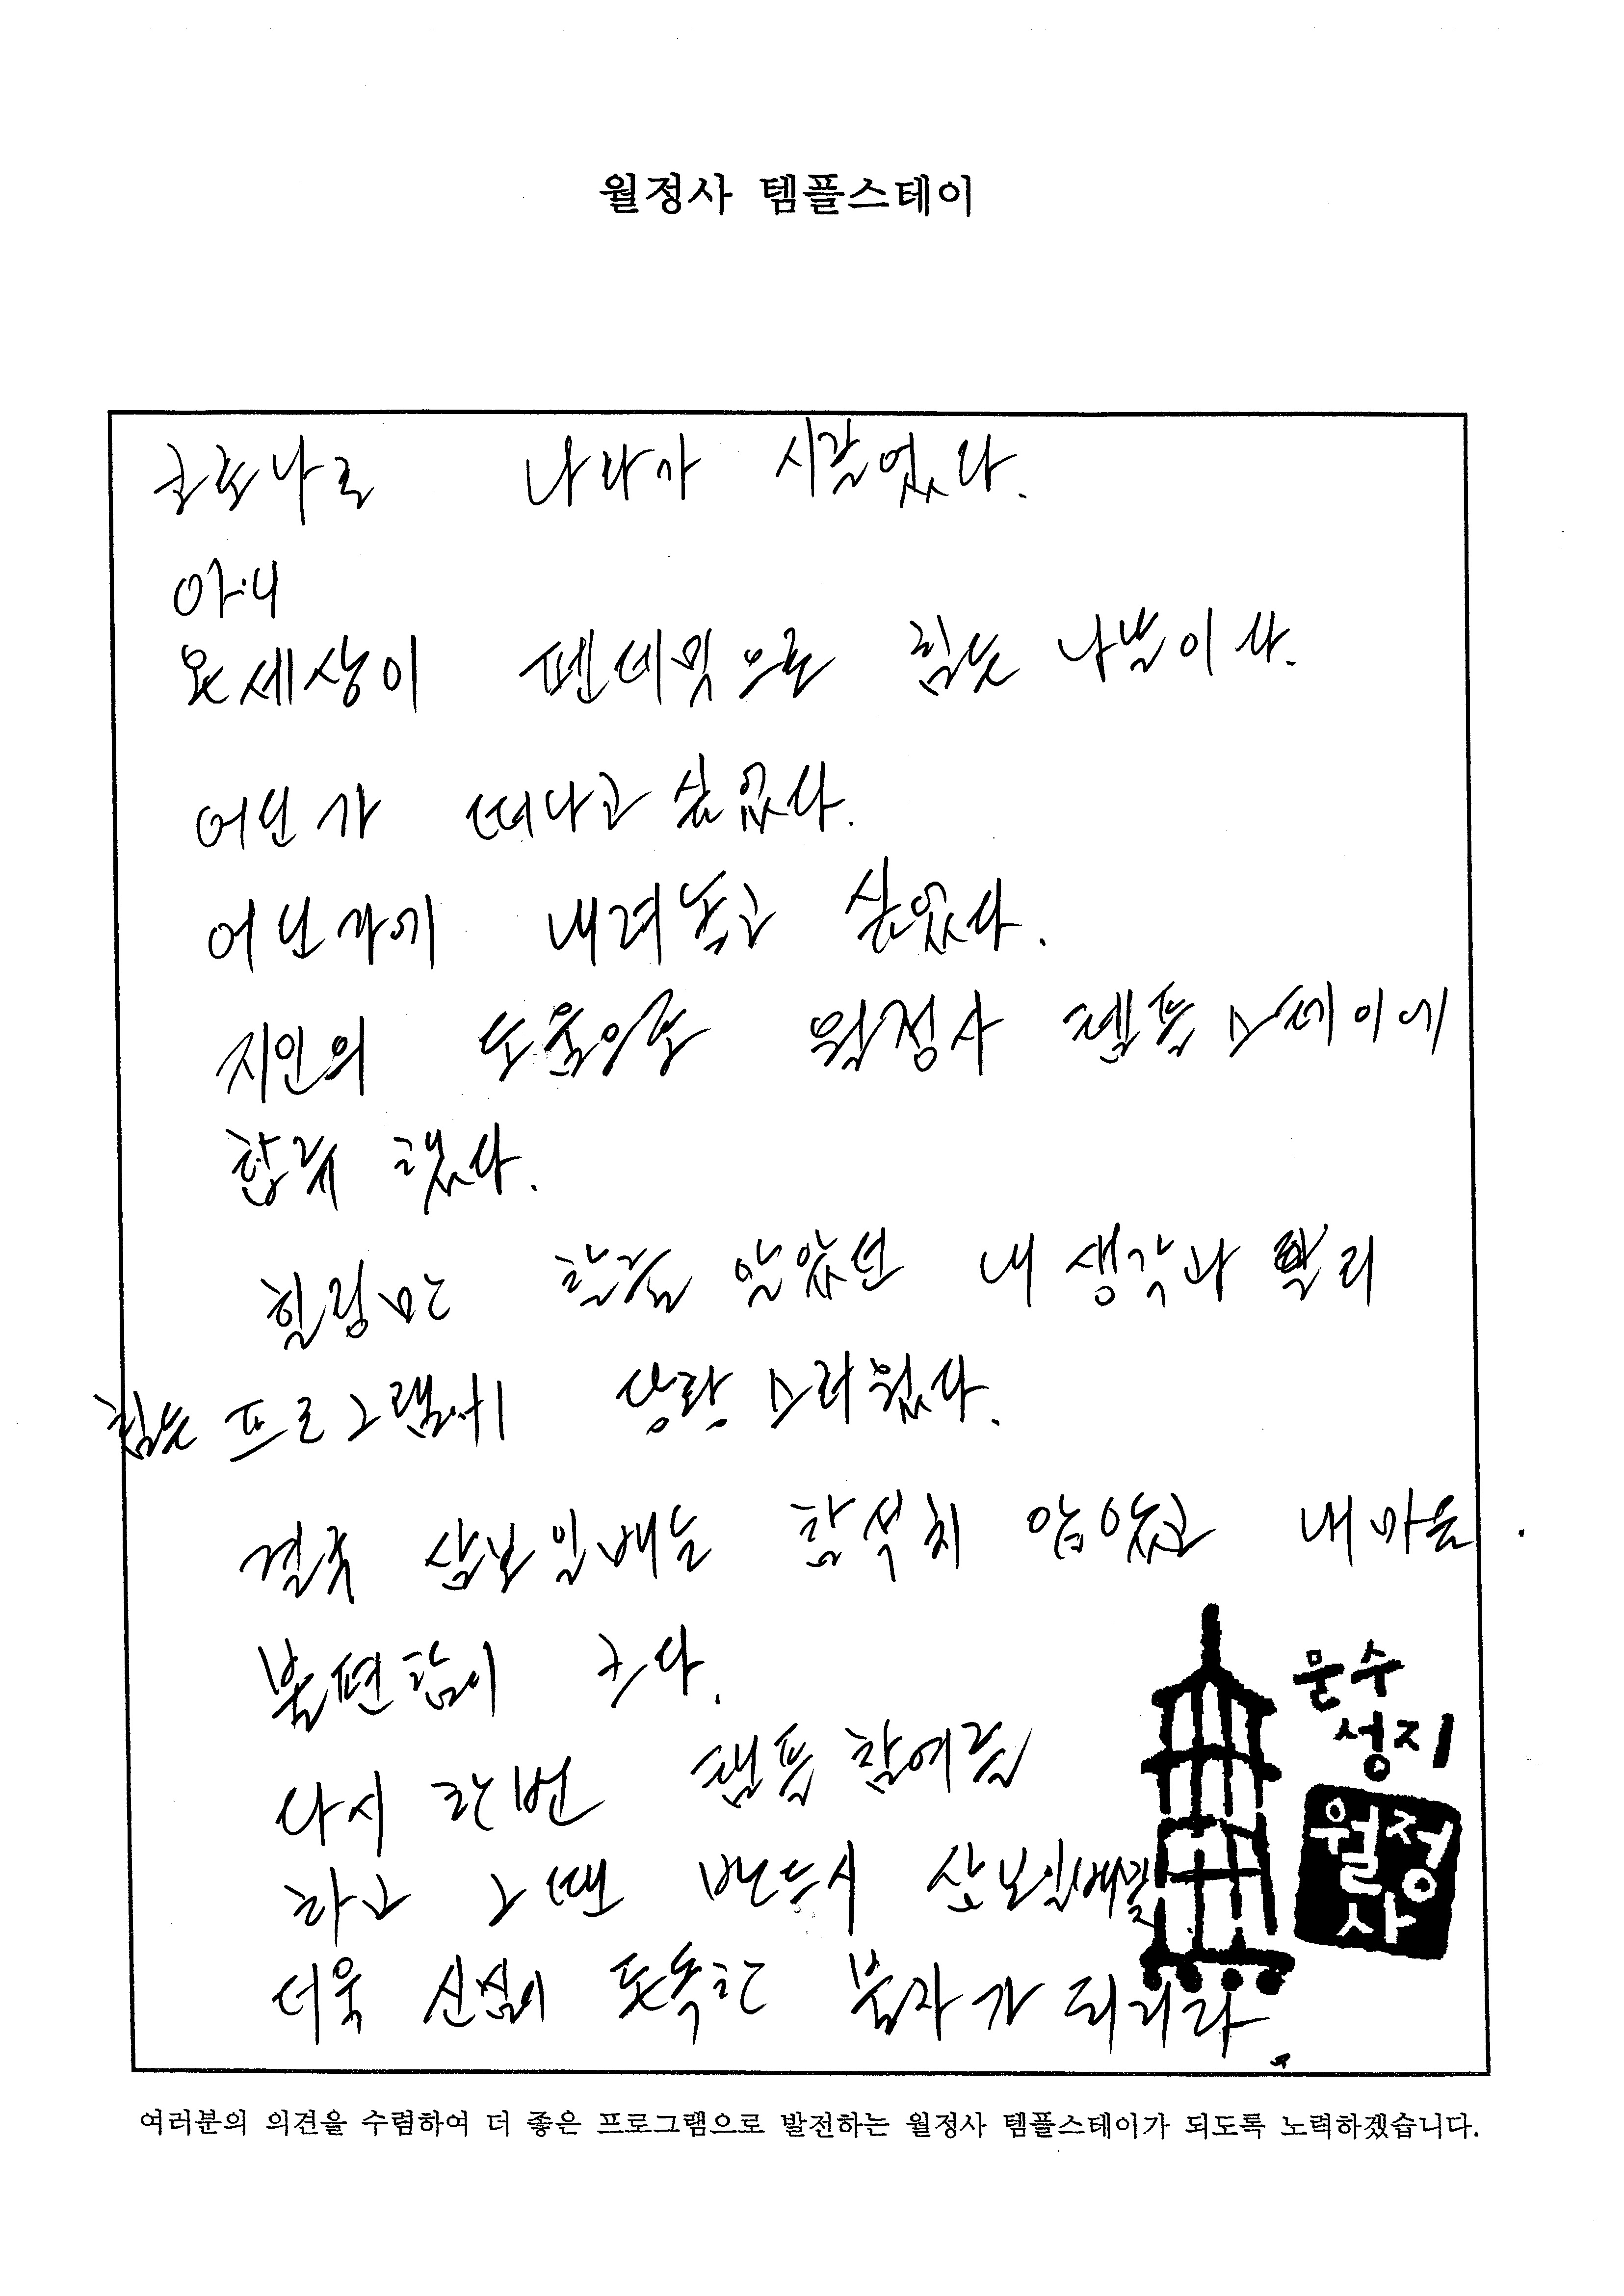 월정사 템플스테이
코로나로 나라가 시끌었다.
아니
온세상이 펜데믹으로 힘든 나날이다.
어딘가 떠나고 싶었다.
어딘가에 내려놓고 싶었다.
지인의 도움으로 월정사 템플스테이에
합류 했다.
힐링만 할줄 알았던 내 생각과 빨리
힘든 프로그램에 당황스러웠다.
결국 삼보일배는 참석치 않았고 내마음
불편함이 크다.
다시 한번 템플 참여를
하고 그땐 반드시 삼보일배로
더욱 신심이 돈독한 불자가 되리라.
문수
성지
월정
사
여러분의 의견을 수렴하여 더 좋은 프로그램으로 발전하는 월정사 템플스테이가 되도록 노력하겠습니다.